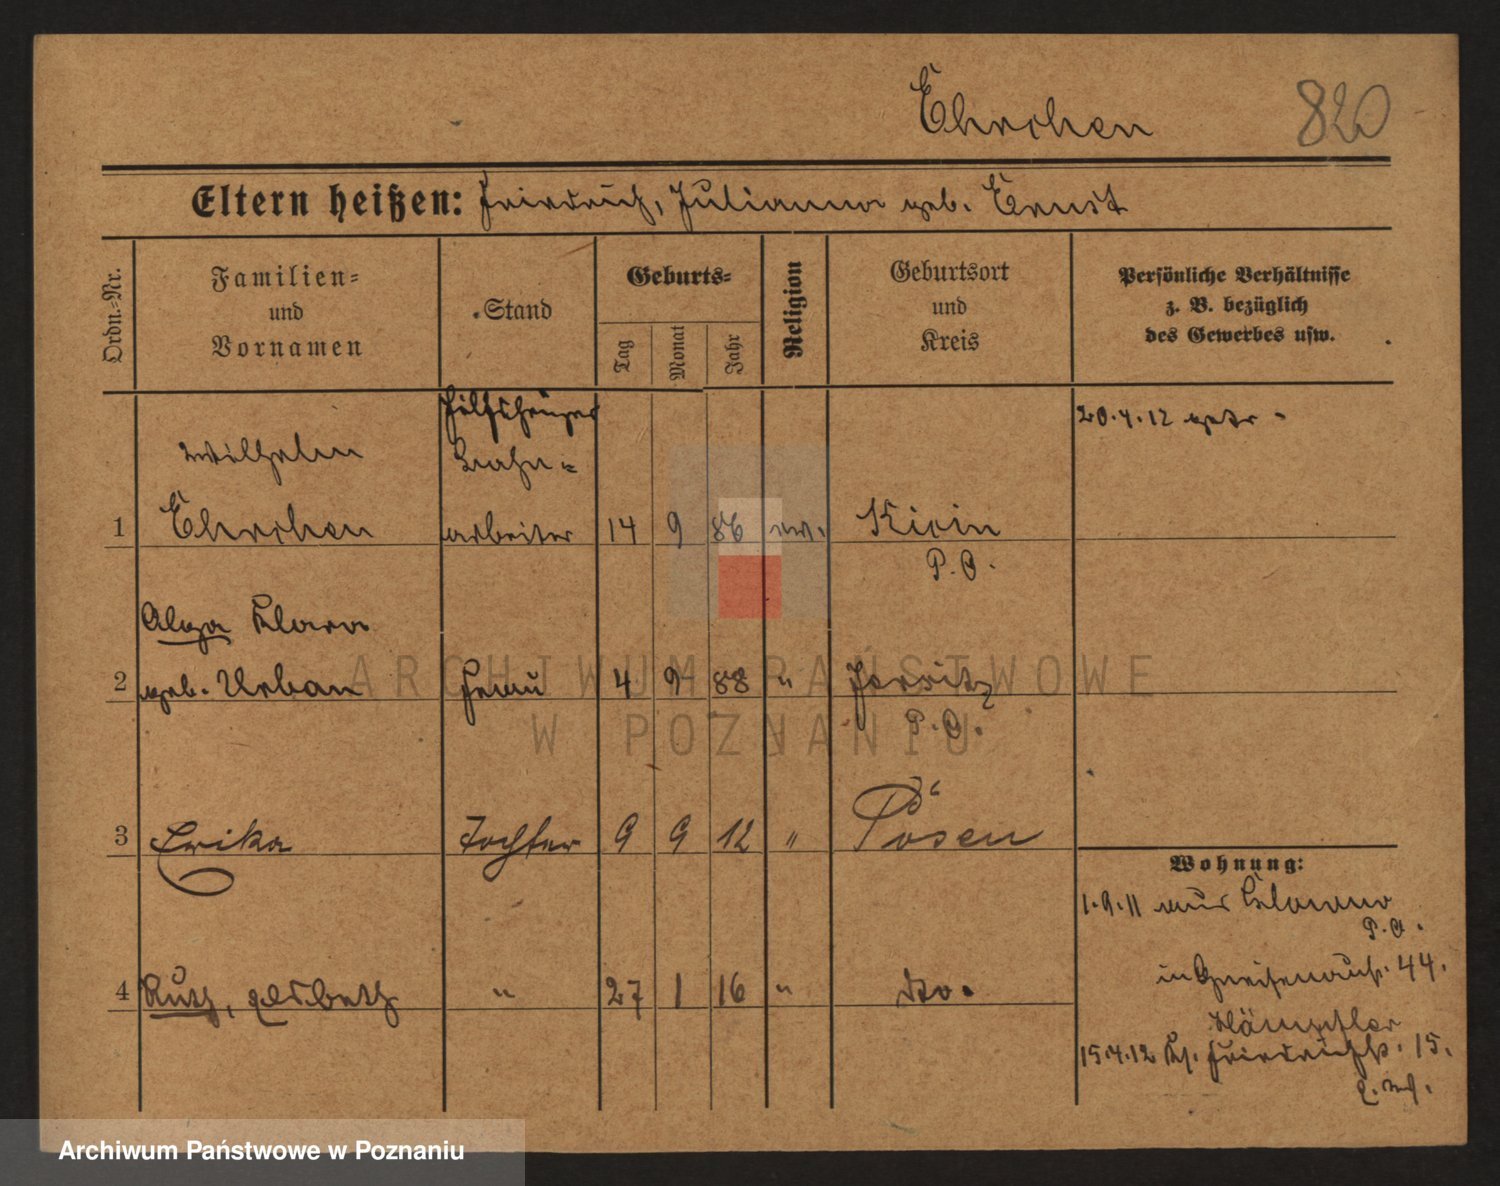 Ehrchen 820
Eltern heißen: Friedrich, Julianna geb. Ernst
Ordn.-Nr.
Familien-
und
Vornamen
Stand
Geburts-
Tag
Monat
Jahr
Religion
Geburtsort
und
Kreis
Persönliche Verhältnisse
z. B. bezüglich
des Gewerbes usw.
Hilfsheizer
20.4.12 getr.
Wilhelm
Bahn-
1 Ehrchen arbeiter 14 9 86 ev.
P.O.
Olga Klara
2 geb. Urban Frau 4 9 88 "
P.O.
3 Erika Tochter 9 9 12 " Posen
Wohnung:
1.9.11 aus
P.O.
4 Ruth, Elsbeth " 27 1 16 " do.
in Gneisenaustr. 44.
15.4.12 Friedrichstr. 15.
ARCHIWUM PAŃSTWOWE
W POZNANIU
Archiwum Państwowe w Poznaniu